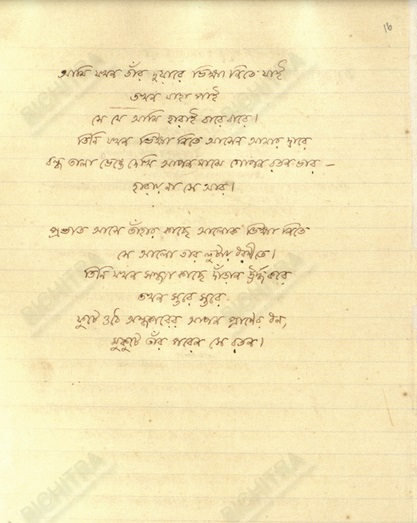 16
আমি যখন তাঁর দুয়ারে ভিক্ষা নিতে যাই
তখন যাহা পাই
সে যে আমি হারাই বারে বারে।
তিনি যখন ভিক্ষা নিতে আসেন আমার দ্বারে
বন্ধ তালা ভেঙে দেখি আপন মাঝে গোপন রতন ভার –
হারায় না সে আর।
প্রভাত আসে তাঁহার কাছে আলোক ভিক্ষা নিতে
সে আলো তার লুটায় ধরণীতে।
তিনি যখন সন্ধ্যা কাছে দাঁড়ান ঊর্দ্ধকরে
তখন স্তরে স্তরে
ফুটে ওঠে অন্ধকারের আপন প্রাণের ধন,
মুকুটে তাঁর পরেন সে রতন।
BICHITRA
BICHITRA
BICHITRA
BICHITRA